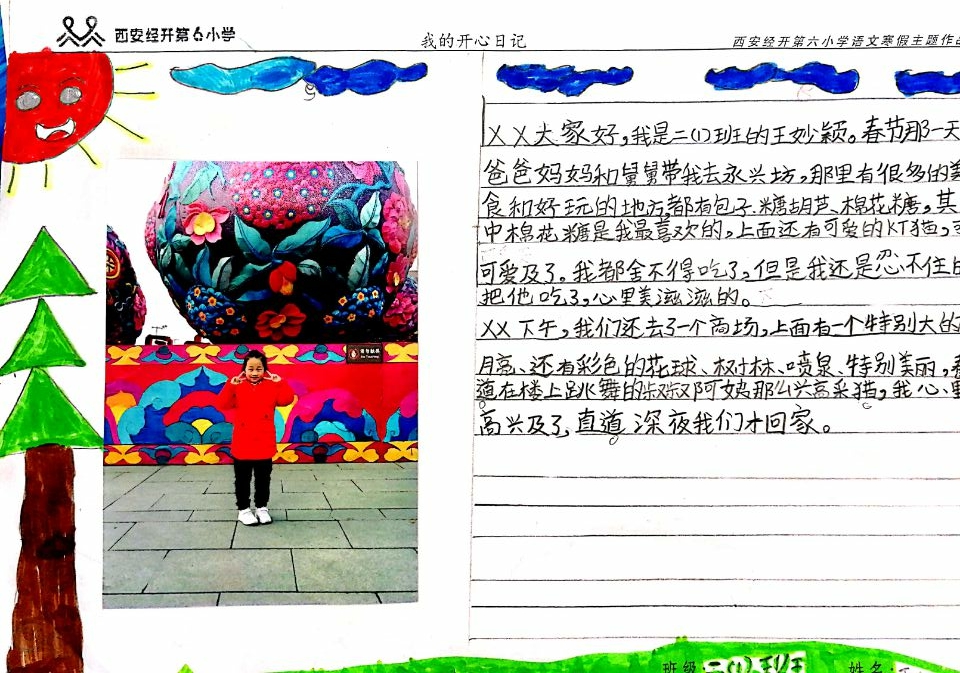 西安经开第6小学
我的开心日记
西安经开第六小学语文寒假主题作品
XX大家好，我是二(1)班的王妙颖。春节那一天
爸爸妈妈和舅舅带我去永兴坊，那里有很多的美
食和好玩的地方都有包子、糖葫芦、棉花糖，其
中棉花糖是我最喜欢的，上面还有可爱的KT猫，
可爱及了。我都舍不得吃了，但是我还是忍不住的
把他吃了，心里美滋滋的。
XX下午，我们还去了一个商场，上面有一个特别大的
月亮、还有彩色的花球、树林、喷泉、特别美丽，看
道在楼上跳舞的叔叔阿姨那么兴高采猎，我心里
高兴及了，直道深夜我们才回家。
班级：二(1)班
姓名：